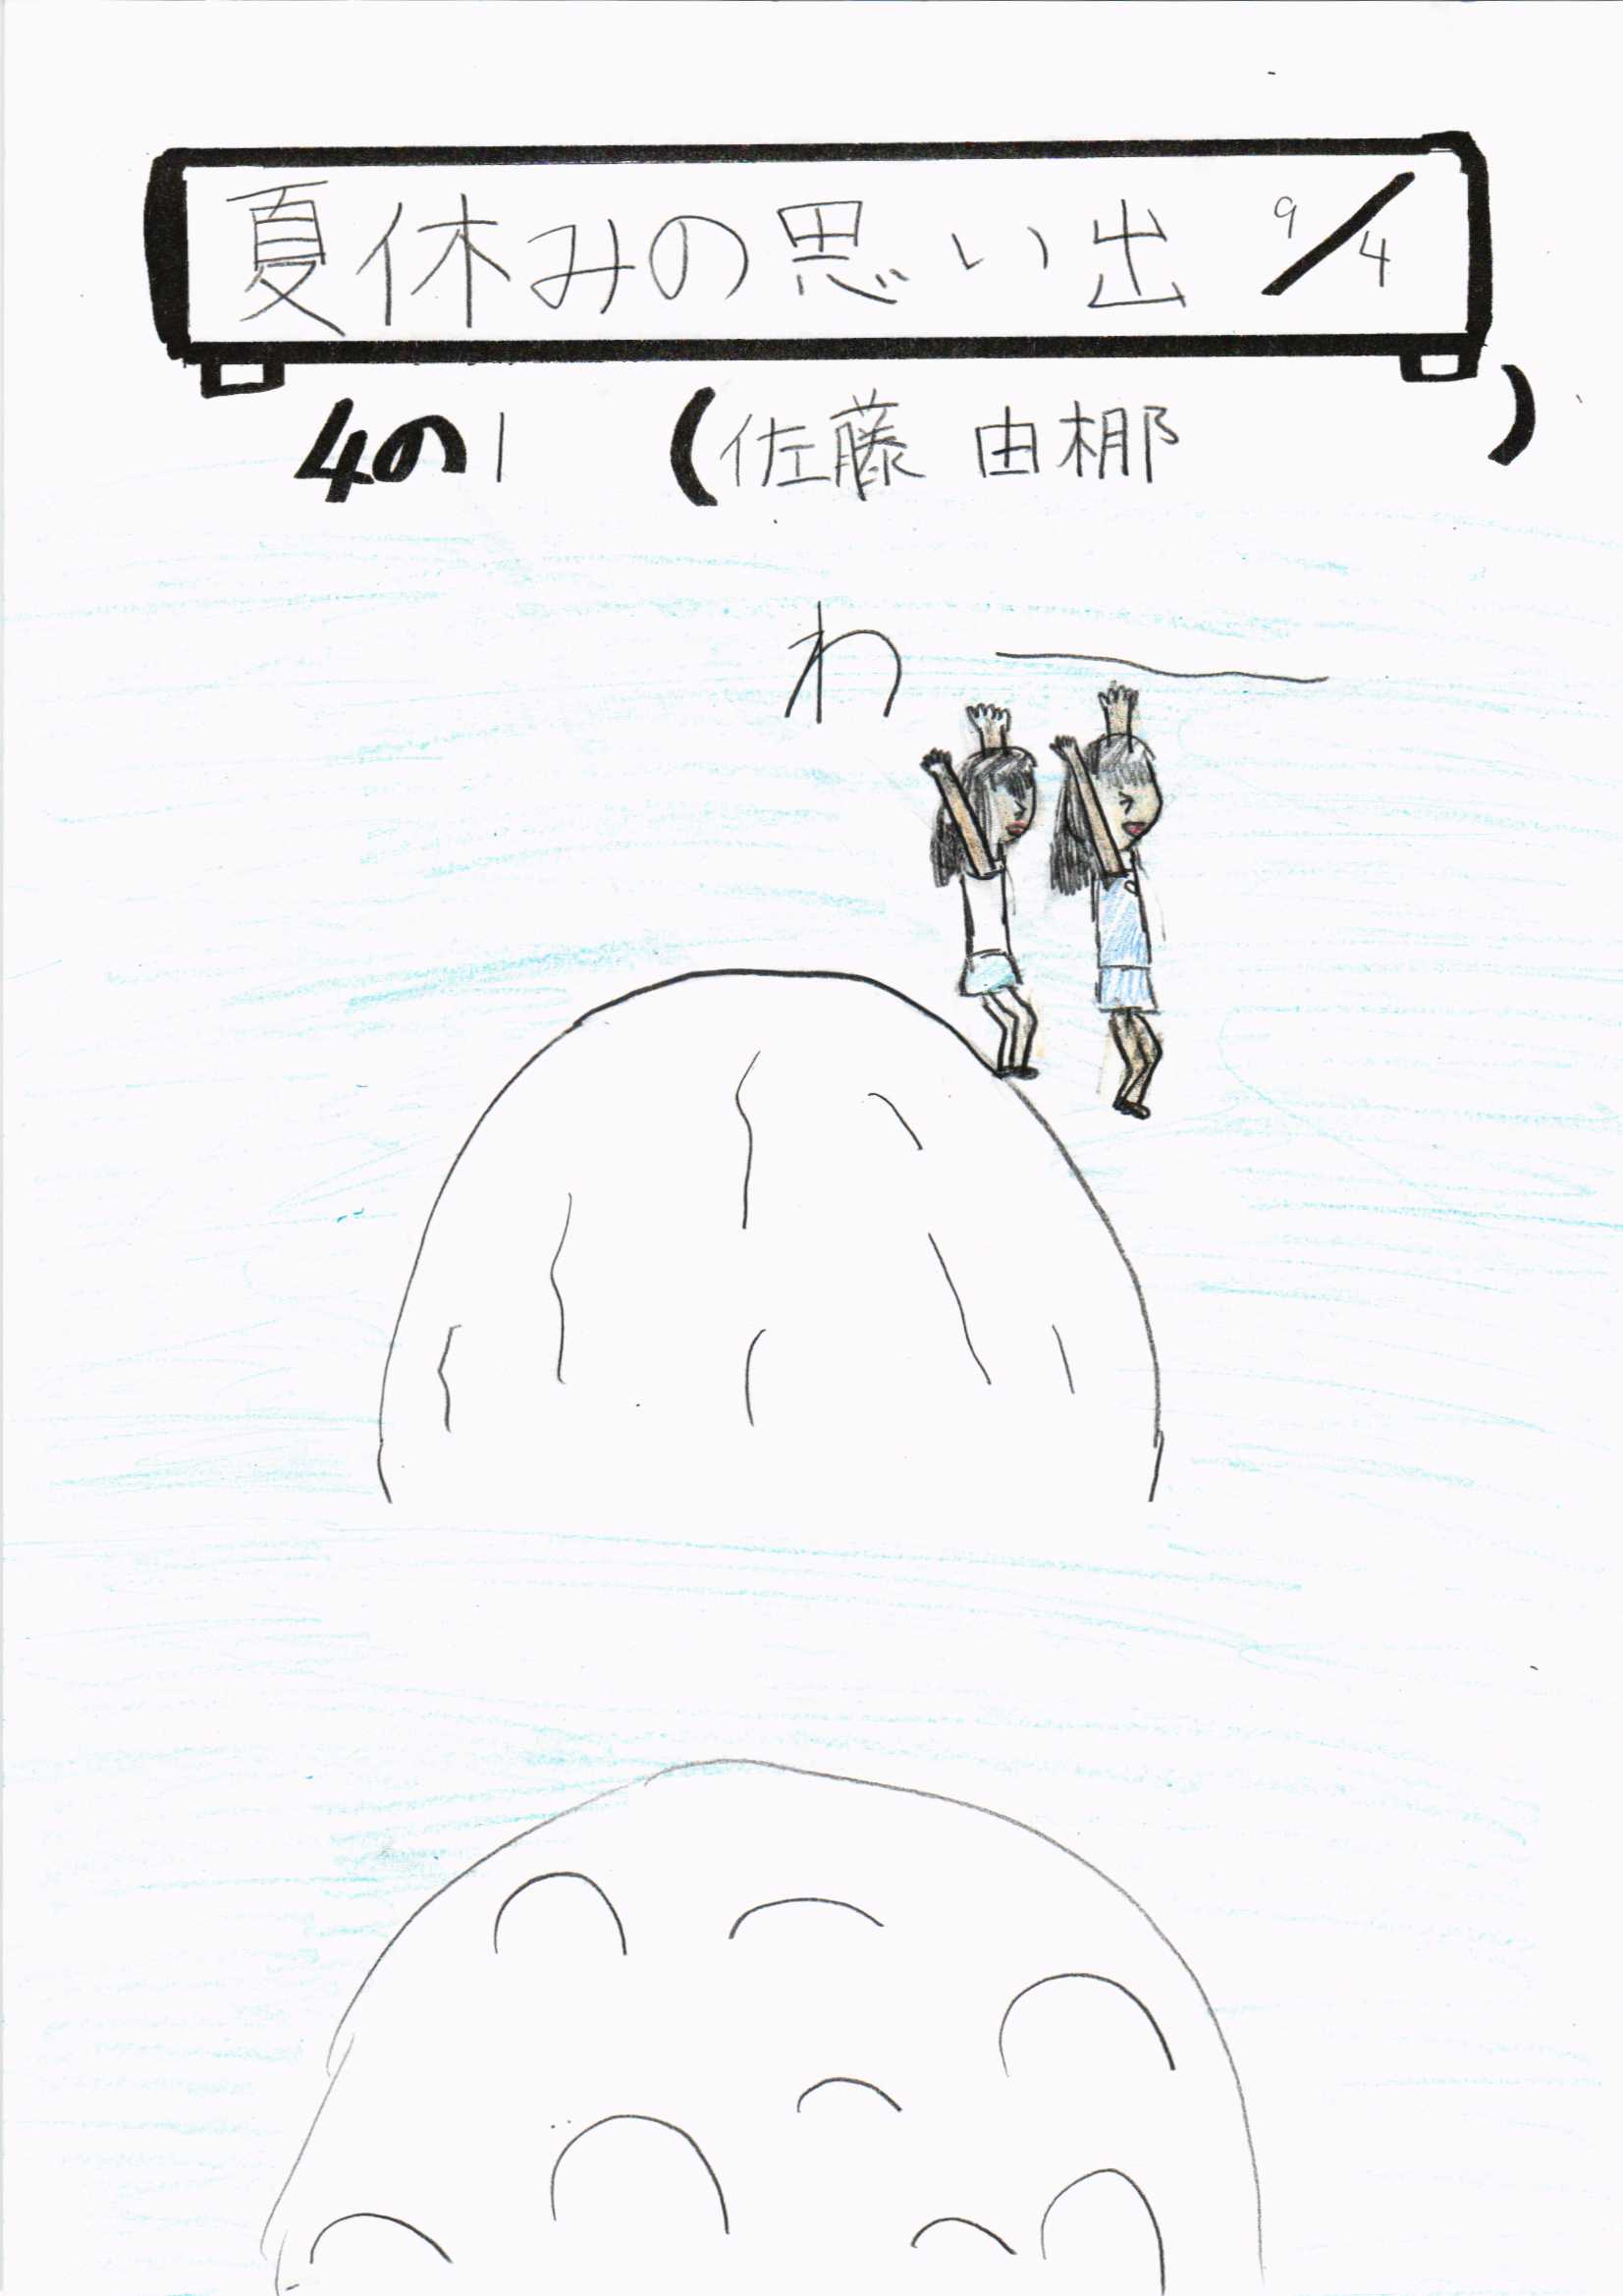 夏休みの思い出 9/4
4の1 (佐藤 由梛)
わー